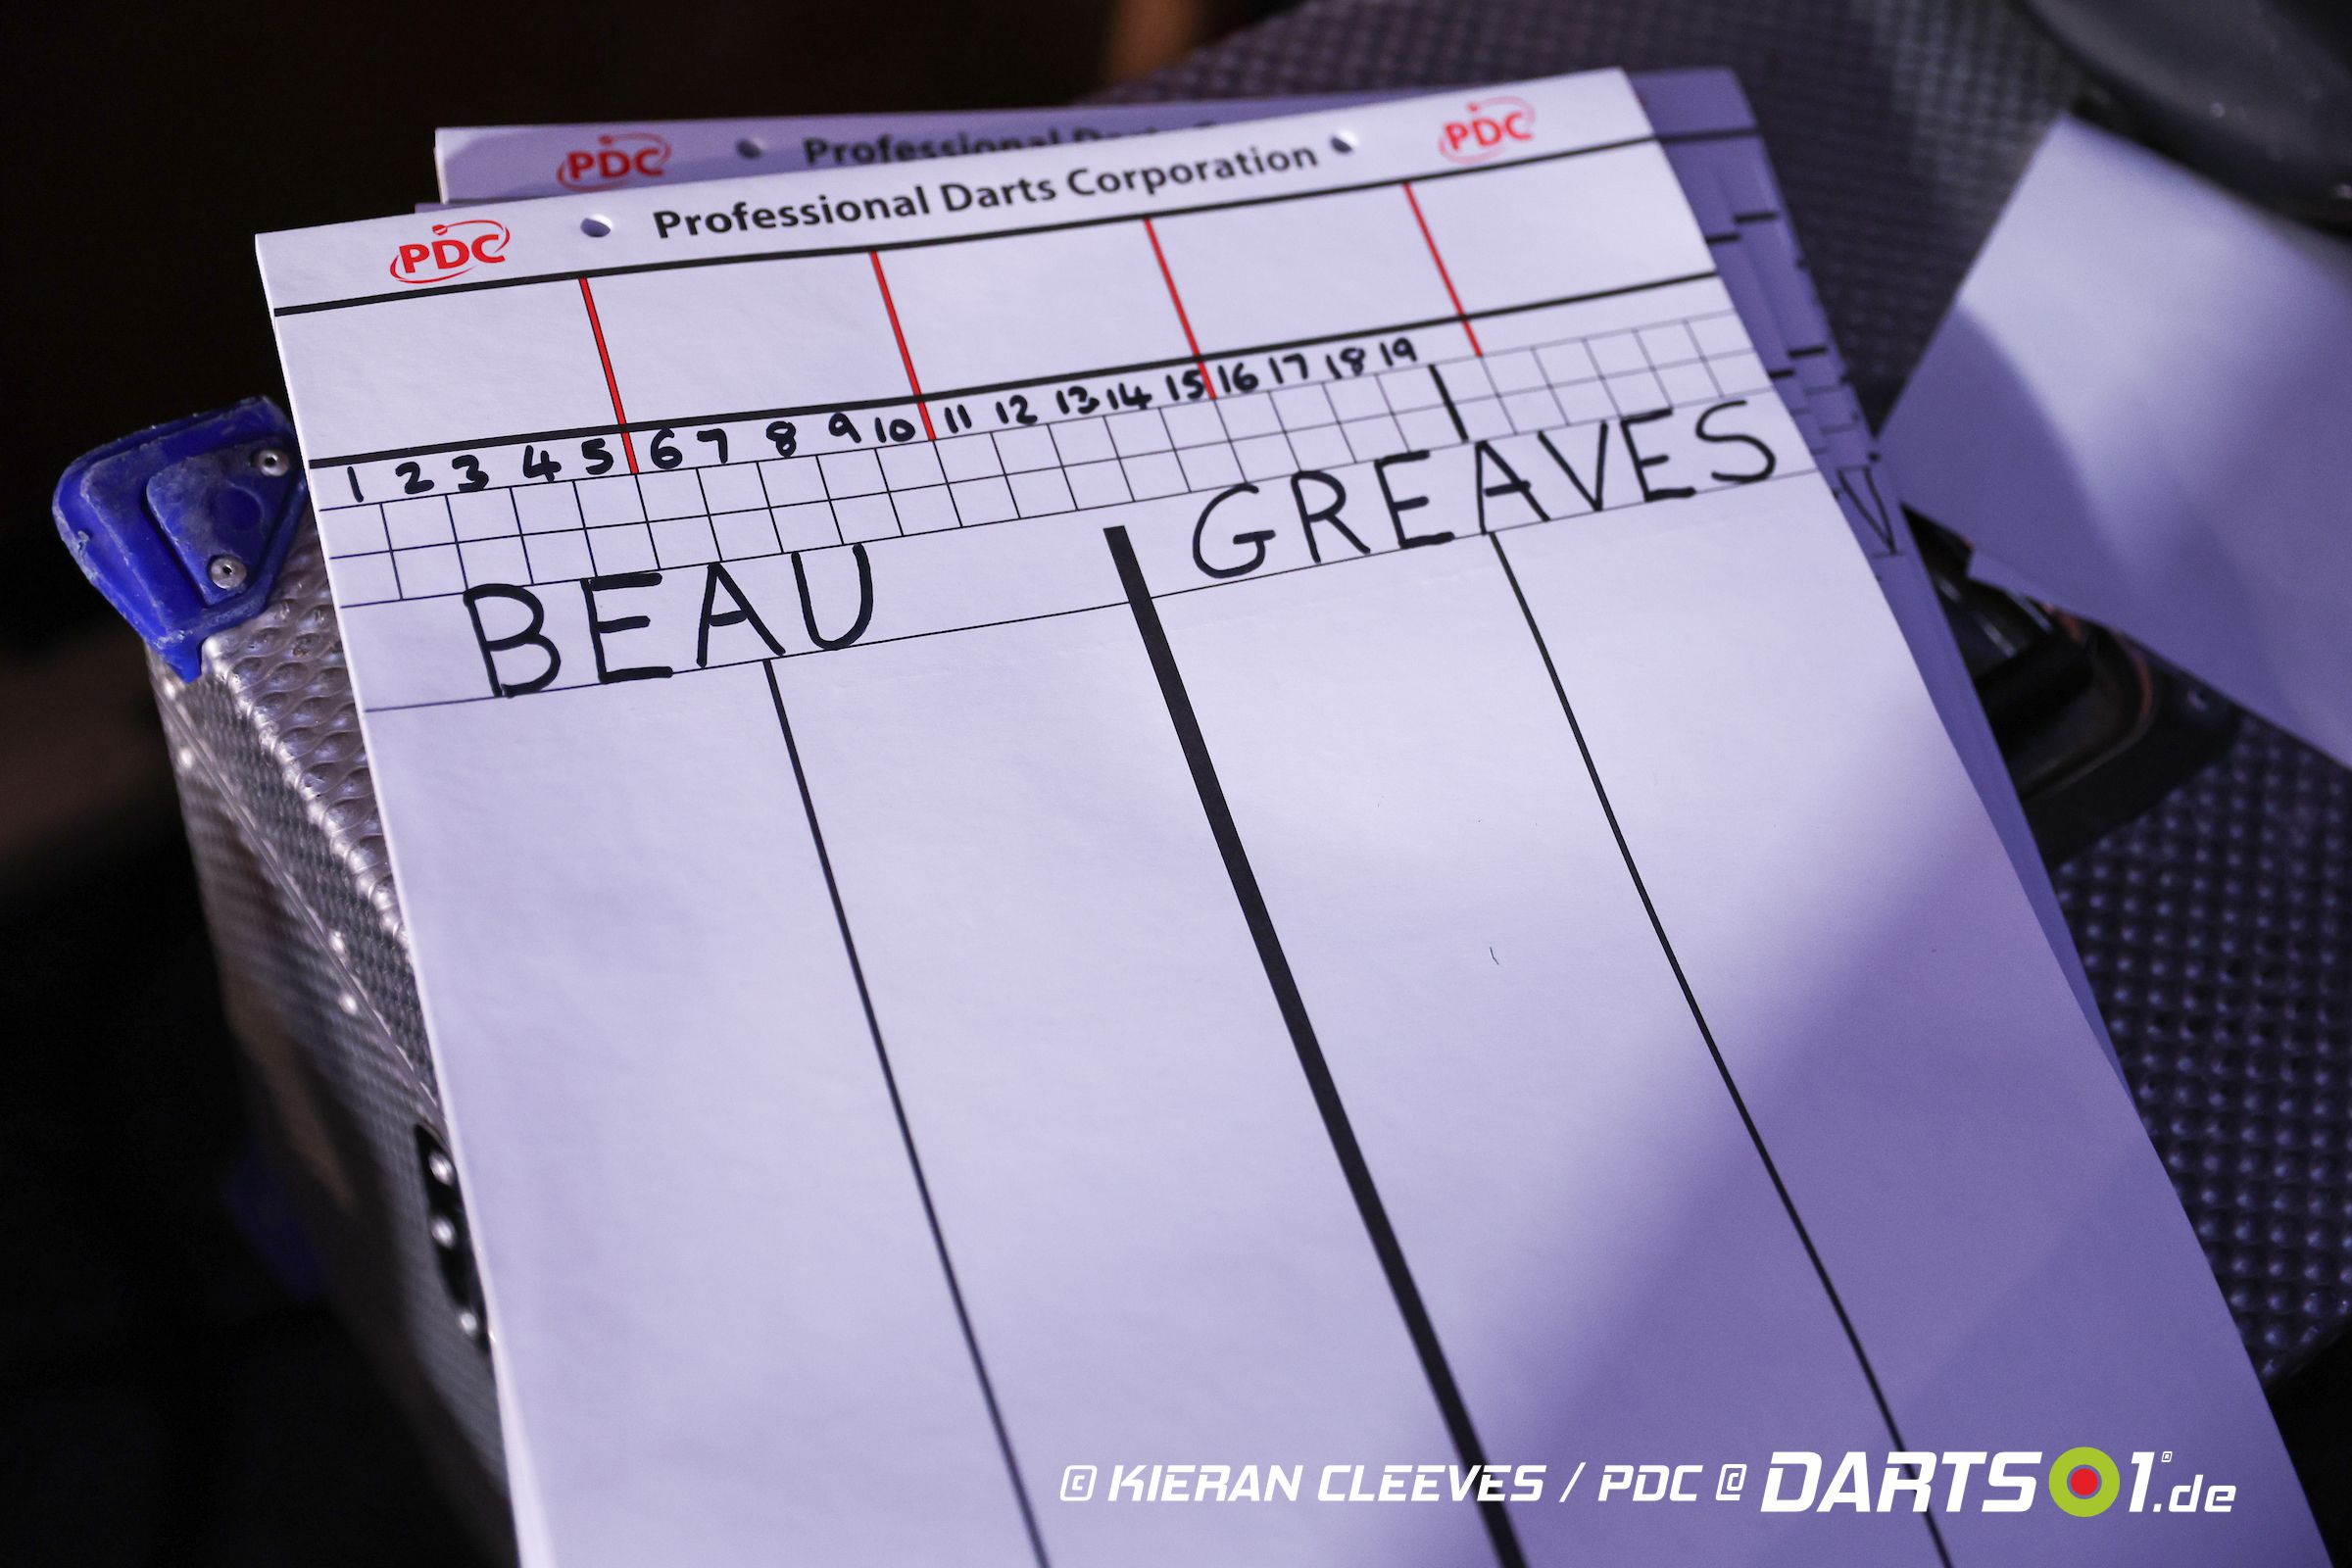 PDC Professional Darts
PDC Professional Darts Corporation PDC
1 2 3 4 5 6 7 8 9 10 11 12 13 14 15 16 17 18 19
BEAU GREAVES
© KIERAN CLEEVES / PDC @ DARTS1.de